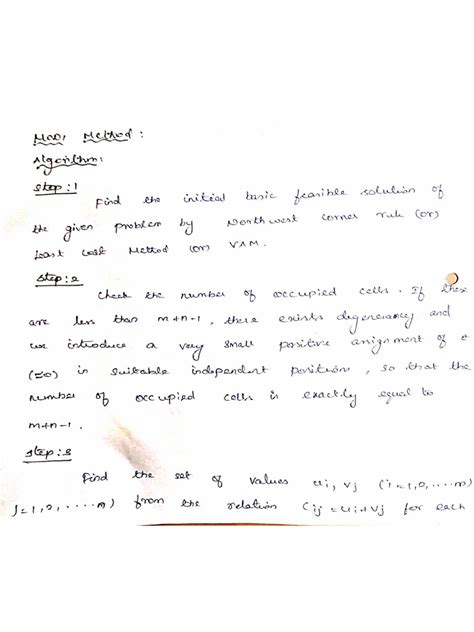 MODI Method :
Algorithm:
Step :1
Find the initial basic feasible solution of
the given problem by Northwest corner rule (or)
Least Cost Method (or) VAM.
Step :2
Check the number of occupied cells. If these
are less than m+n-1, there exists degeneracy and
we introduce a very small positive assignment of ϵ
(≈0) in suitable independent positions, so that the
number of occupied cells is exactly equal to
m+n-1.
Step :3
Find the set of values ui, vj (i=1,2,....m)
j=1,2,.....n) from the relation Cij=ui+vj for each